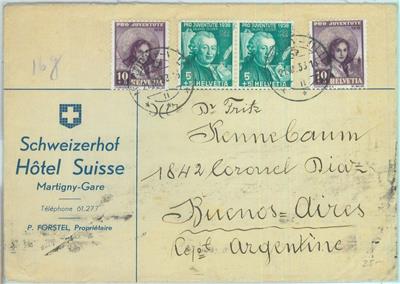 16 g
PRO JUVENTUTE
10 HELVETIA
PRO JUVENTUTE 1936
5+5 HELVETIA
PRO JUVENTUTE 1936
5+5 HELVETIA
PRO JUVENTUTE
10 HELVETIA
Schweizerhof
Hôtel Suisse
Martigny-Gare
Téléphone 61.277
P. FORSTEL, Propriétaire
Dr Fritz
Kennebaum
1842 Coronel Diaz
Buenos=Aires
Argentine